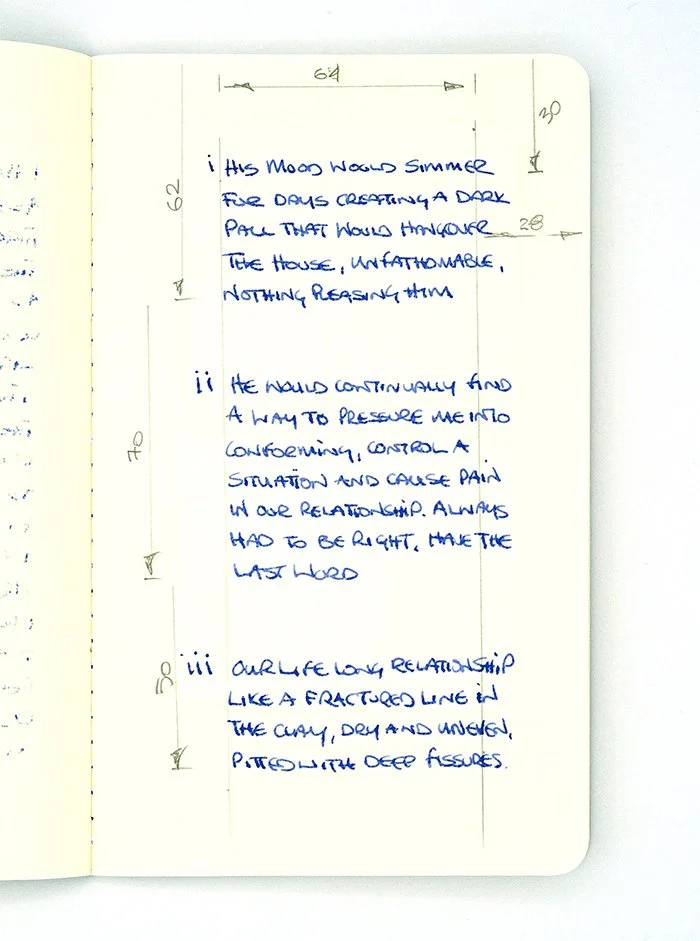 64
30
i HIS MOOD WOULD SIMMER
FOR DAYS CREATING A DARK
PALL THAT WOULD HANGOVER
28
62
THE HOUSE, UNFATHOMABLE,
NOTHING PLEASING HIM
ii HE WOULD CONTINUALLY FIND
A WAY TO PRESSURE ME INTO
CONFORMING, CONTROL A
70
SITUATION AND CAUSE PAIN
IN OUR RELATIONSHIP. ALWAYS
HAD TO BE RIGHT, HAVE THE
LAST WORD
iii OUR LIFE LONG RELATIONSHIP
50
LIKE A FRACTURED LINE IN
THE CLAY, DRY AND UNEVEN,
PITTED WITH DEEP FISSURES.